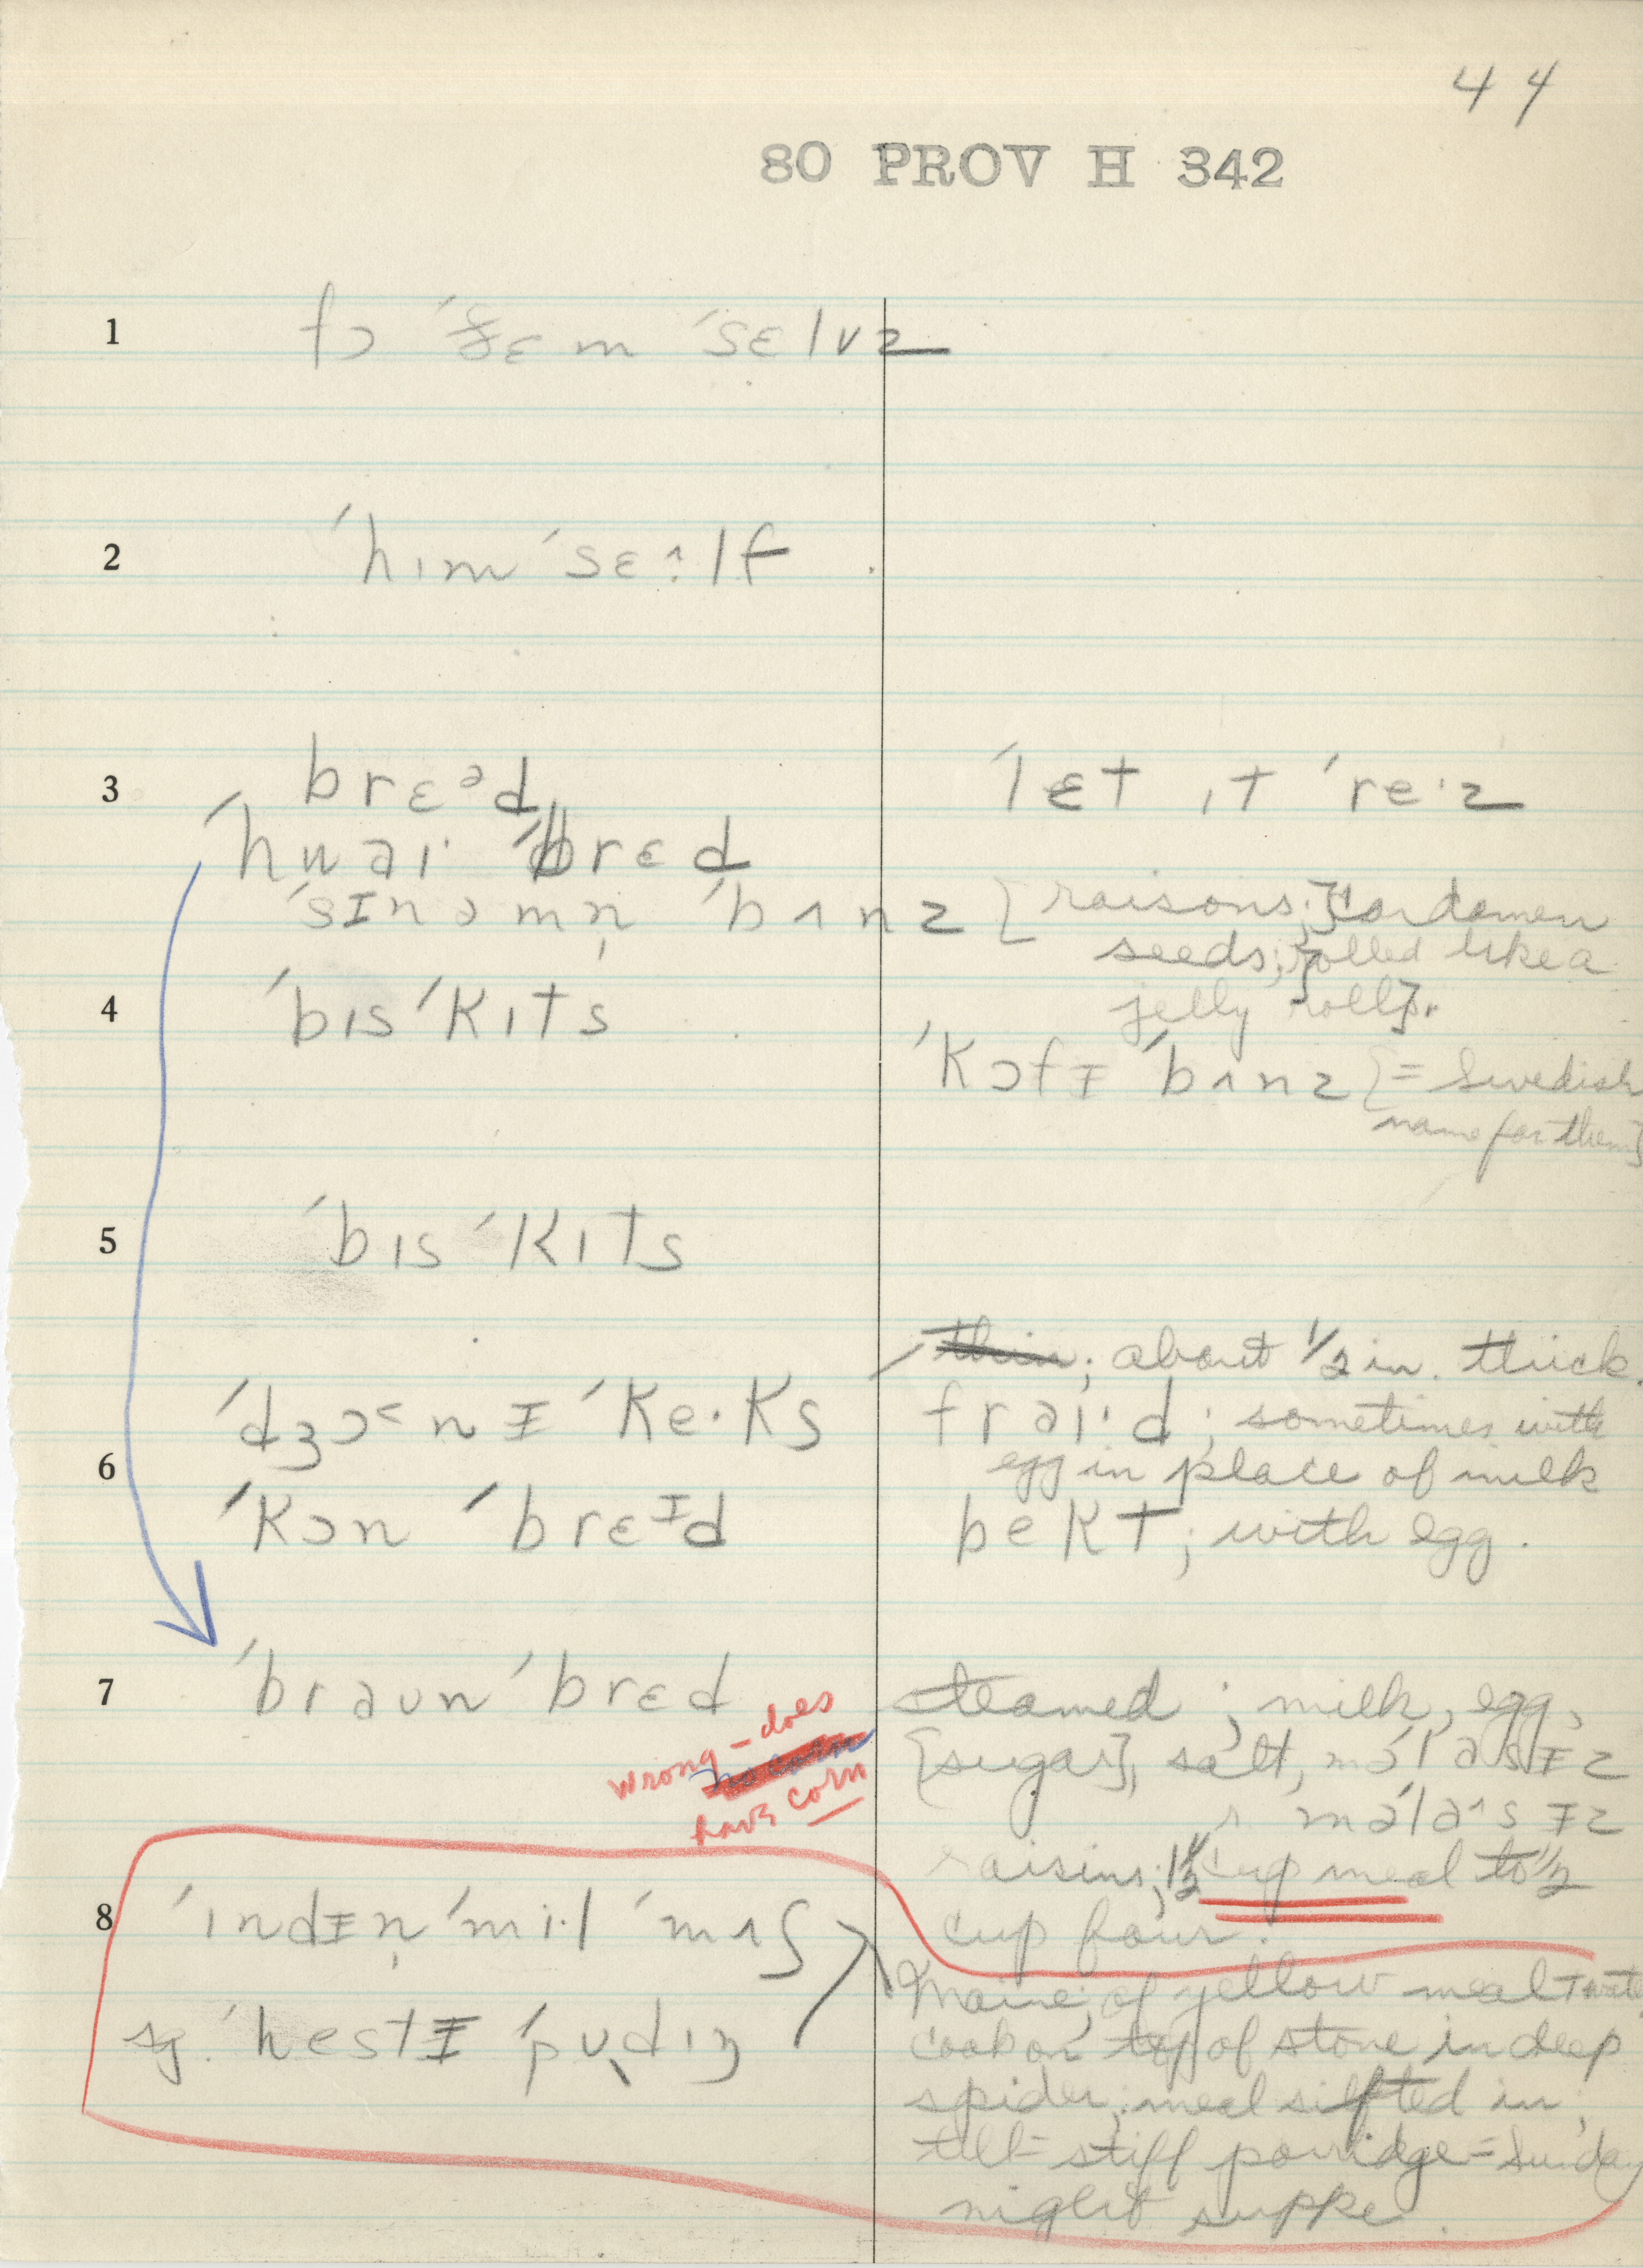 44
80 PROV H 342
1 fɔ ˈðɛm ˈsɛlvz
2 ˈhɪm ˈsɛ^:lf
3 brɛᵊd ˈlɛt ɪt ˈre·z
ˈhwai· ˈbrɛd
ˈsɪnəmn̩ ˈbʌnz [raisons;] [cardamen
seeds;] [rolled like a
jelly roll].
4 ˈbɪsˈkɪts
ˈkɔfɪ ˈbʌnz [= Swedish
name for them]
5 ˈbɪsˈkɪts
thin; about 1/2 in. thick.
ˈdʒɔ˂nɪ ˈke·ks fraɪ·d; sometimes with
6 egg in place of milk
ˈkɔn ˈbrɛᶦd bekt; with egg.
7 ˈbraʊn ˈbrɛd steamed; milk, egg,
wrong - does no corn have corn
[sugar], salt, məˈlasɪz
r. məˈla^sɪz
raisins; 1 1/2 cup meal to 1/2
cup flour.
8 ˈɪndɪn̩ ˈmi·l ˈmʌʃ
Maine; of yellow meal + water
sg. ˈhestɪ ˈpʊdɪŋ cook on top of stove in deep
spider; meal sifted in;
till = stiff porridge = Sunday
night suppe.